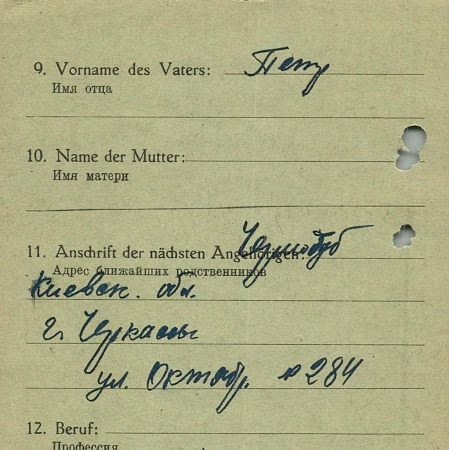 9. Vorname des Vaters: Петр
Имя отца
10. Name der Mutter:
Имя матери
11. Anschrift der nächsten Angehörigen:
Адрес ближайших родственников
Киевск. обл.
г. Черкассы
ул. Октябр. № 284
12. Beruf:
Профессия